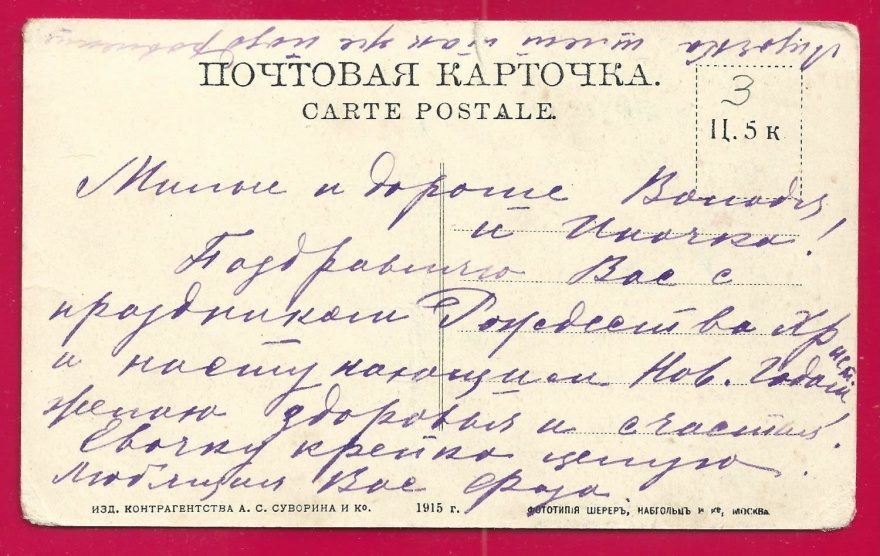 Лидочка шлет также поздравление
ПОЧТОВАЯ КАРТОЧКА.
CARTE POSTALE.
3
Ц. 5 к
Милые и дорогие Володя
и Иночка!
Поздравляю Вас с
праздником Рождества Христ.
и наступающим Нов. Годом!
желаю здоровья и счастья!
Евочку крепко целую
Любящая Вас
ИЗД. КОНТРАГЕНТСТВА А. С. СУВОРИНА И Ко. 1915 г. ФОТОТИПІЯ ШЕРЕРЪ, НАБГОЛЬЦЪ И Ко, МОСКВА.